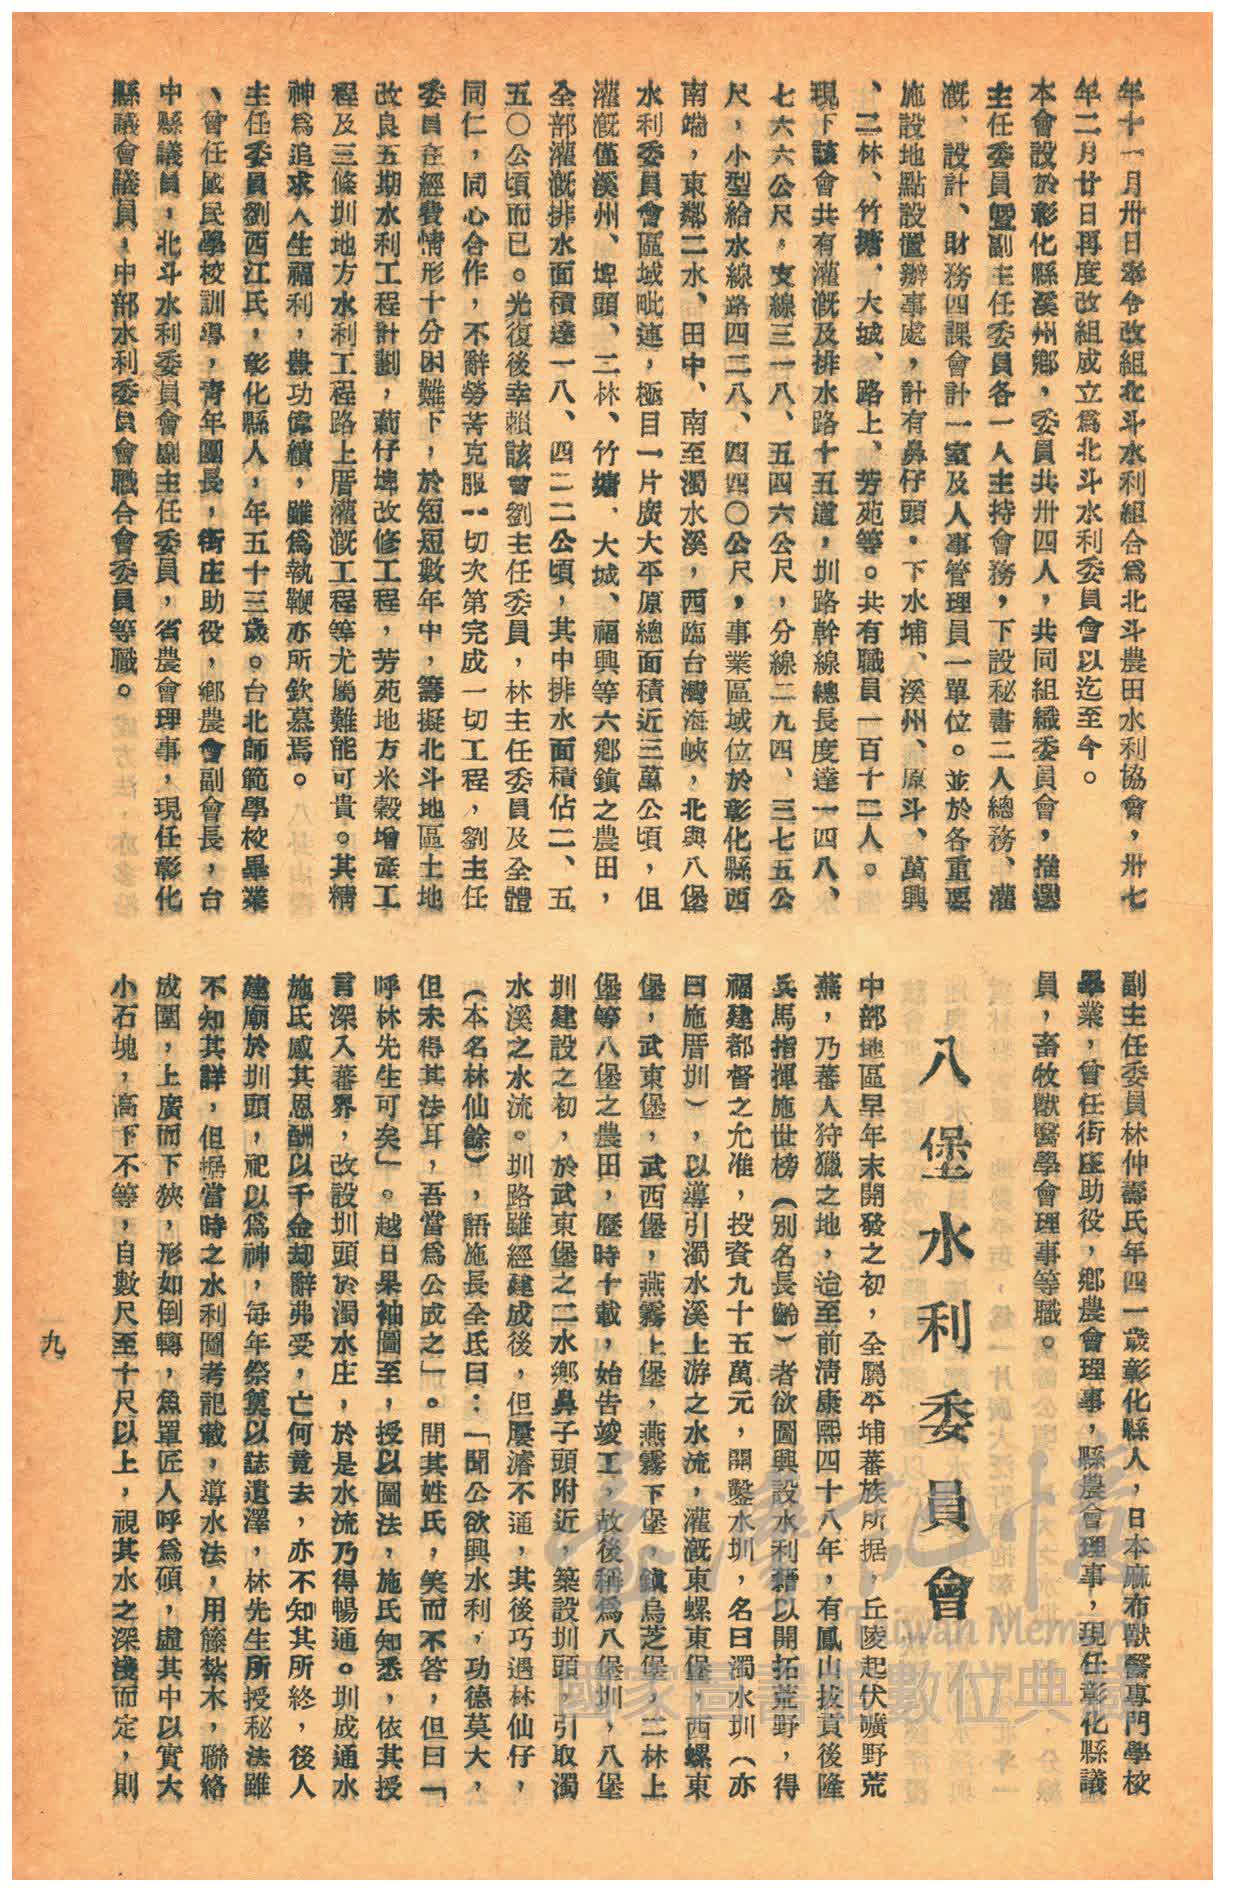 年十一月卅日奉令改組北斗水利組合爲北斗農田水利協會，卅七
年二月廿日再度改組成立爲北斗水利委員會以迄至今。
本會設於彰化縣溪州鄉，委員共卅四人，共同組織委員會，推選
主任委員曁副主任委員各一人主持會務，下設秘書二人總務、灌
漑、設計、財務四課會計一室及人事管理員一單位。並於各重要
施設地點設置辦事處，計有鼻仔頭．下水埔、溪州、原斗、萬興
、二林、竹塘、大城、路上、芳苑等。共有職員一百十二人。
現下該會共有灌漑及排水路十五道，圳路幹線總長度達一四八、
七六六公尺，支線三一八、五四六公尺，分線二九四、三七五公
尺，小型給水線路四二八、四四〇公尺，事業區域位於彰化縣西
南端，東鄰二水、田中、南至濁水溪，西臨台灣海峽，北與八堡
水利委員會區域毗連，極目一片廣大平原總面積近三萬公頃，但
灌漑僅溪州、埤頭、二林、竹塘．大城、福興等六鄉鎮之農田，
全部灌漑排水面積達一八、四二二公頃，其中排水面積佔二、五
五〇公頃而已。光復後幸賴該會劉主任委員，林主任委員及全體
同仁，同心合作，不辭勞苦克服一切次第完成一切工程，劉主任
委員在經費情形十分困難下，於短短數年中，籌擬北斗地區土地
改良五期水利工程計劃，莿仔埤改修工程，芳苑地方米穀增產工
程及三條圳地方水利工程路上厝灌漑工程等尤屬難能可貴。其精
神爲追求人生福利，豊功偉績，雖爲執鞭亦所欽慕焉。
主任委員劉西江氏，彰化縣人，年五十三歲。台北師範學校畢業
、曾任國民學校訓導，青年團長，街庄助役，鄉農會副會長，台
中縣議員，北斗水利委員會副主任委員，省農會理事，現任彰化
縣議會議員，中部水利委員會職合會委員等職。
副主任委員林仲壽氏年四一歲彰化縣人，日本麻布獸醫專門學校
畢業，曾任街庄助役，鄉農會理事，縣農會理事，現任彰化縣議
員，畜牧獸醫學會理事等職。
八堡水利委員會
中部地區早年未開發之初，全屬平埔蕃族所据，丘陵起伏曠野荒
蕪，乃蕃人狩獵之地，迨至前淸康熙四十八年，有鳳山拔貢後隆
兵馬指揮施世榜（別名長齡）者欲圖興設水利藉以開拓荒野，得
福建都督之允准，投資九十五萬元，開鑿水圳，名曰濁水圳（亦
曰施厝圳），以導引濁水溪上游之水流，灌漑東螺東堡，西螺東
堡，武東堡，武西堡，燕霧上堡，燕霧下堡，鎮烏芝堡，二林上
堡等八堡之農田，歷時十載，始告竣工，故後稱爲八堡圳，八堡
圳建設之初，於武東堡之二水鄉鼻子頭附近，築設圳頭，引取濁
水溪之水流。圳路雖經建成後，但屢濬不通，其後巧遇林仙仔，
（本名林仙餘），語施長全氏曰：「聞公欲興水利，功德莫大，
但未得其法耳，吾當爲公成之」。問其姓氏，笑而不答，但曰「
呼林先生可矣」。越日果袖圖至，授以圖法，施氏知悉，依其授
言深入蕃界，改設圳頭於濁水庄，於是水流乃得暢通。圳成通水
施氏感其恩酬以千金却辭弗受，亡何竟去，亦不知其所終，後人
建廟於圳頭，祀以爲神，每年祭奠以誌遺澤，林先生所授秘法雖
不知其詳，但据當時之水利圖考記載，導水法，用籐紮木，聯絡
成圍，上廣而下狹，形如倒轉，魚罩匠人呼爲碩，虛其中以實大
小石塊，高下不等，自數尺至十尺以上，視其水之深淺而定，則
九
臺灣記憶
Taiwan Memory
國家圖書館數位典藏